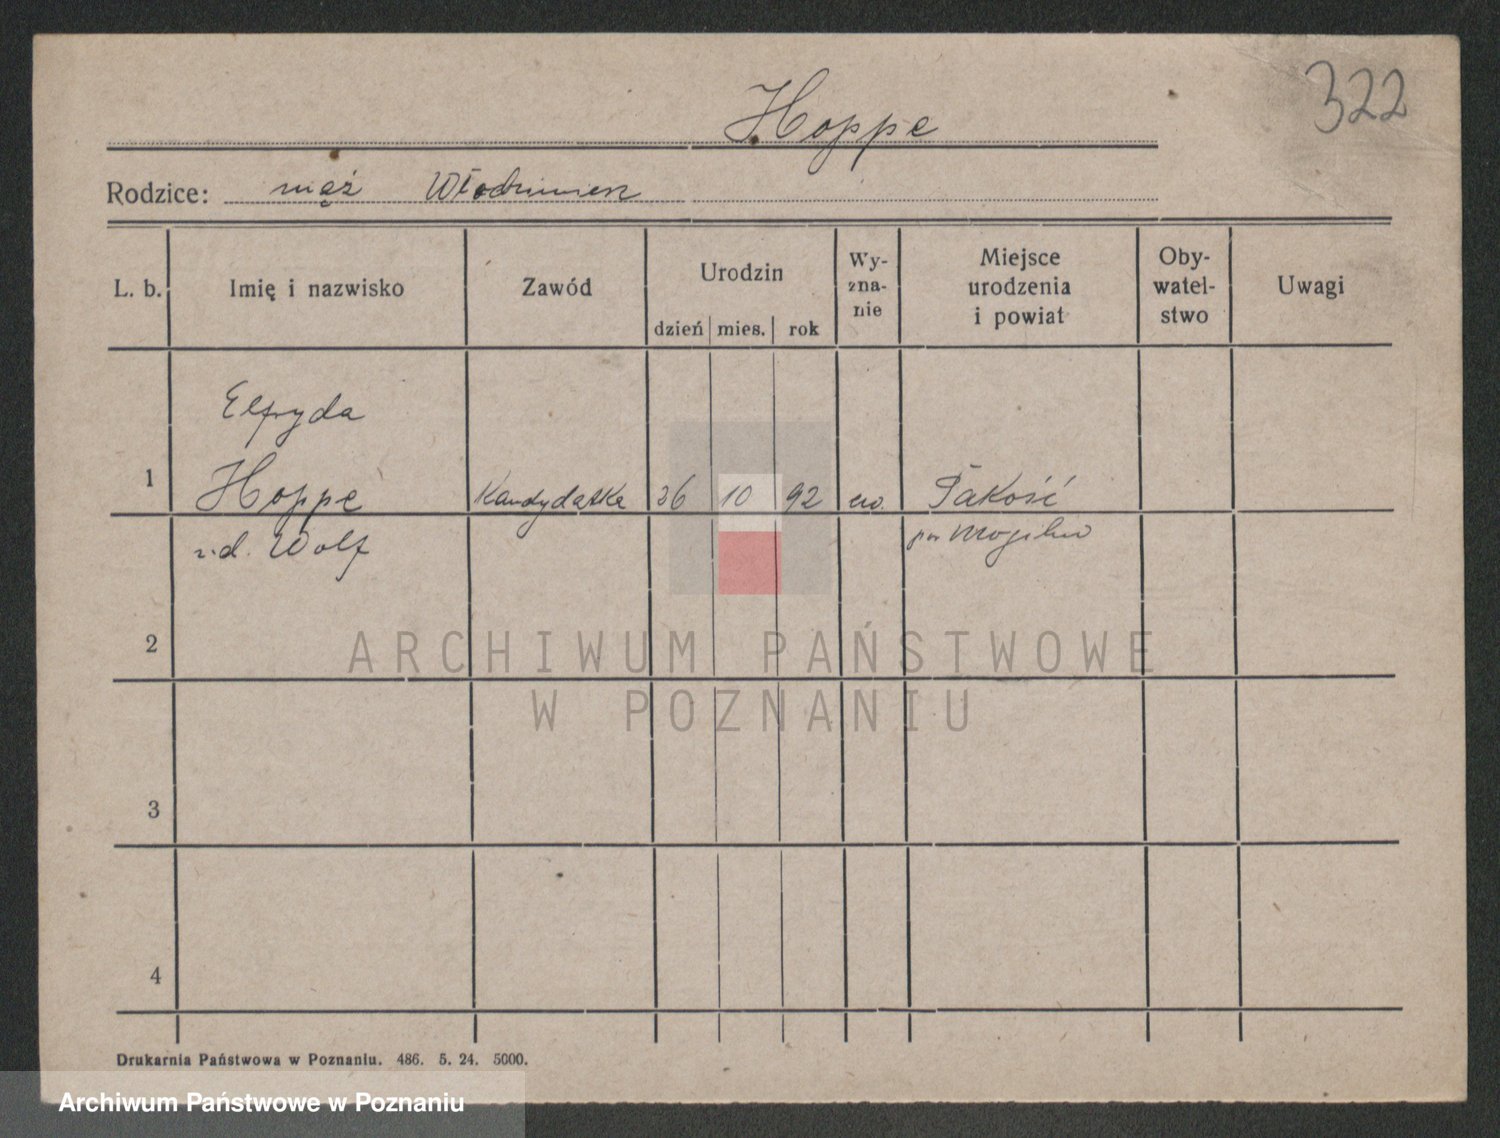 322
Hoppe
Rodzice: mąż Włodzimierz
L. b. Imię i nazwisko Zawód Urodzin dzień mies. rok Wy-zna-nie Miejsce urodzenia i powiat Oby-watel-stwo Uwagi
Elfryda
1 Hoppe Kandydatka 26 10 92 ew. Pakość
z d. Wolf pow Mogilno
2
ARCHIWUM PAŃSTWOWE
W POZNANIU
3
4
Drukarnia Państwowa w Poznaniu. 486. 5. 24. 5000.
Archiwum Państwowe w Poznaniu